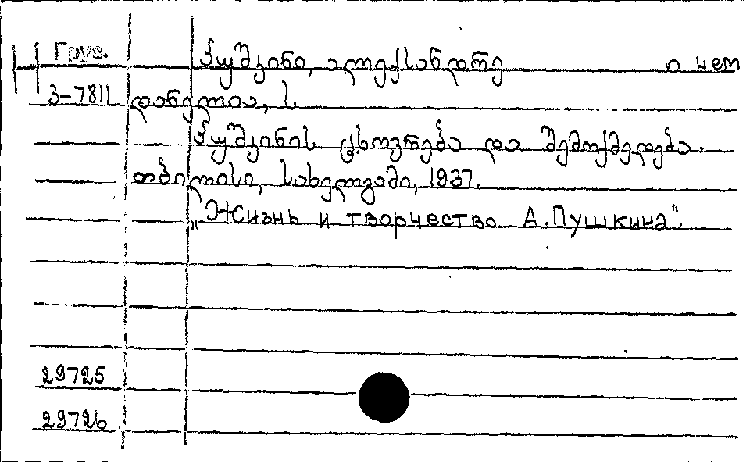 Груз. პუშკინი, ალექსანდრე о нем
3-7811 დანელია, ს.
პუშკინის ცხოვრება და შემოქმედება.
თბილისი, სახელგამი, 1937.
"Жизнь и творчество А.Пушкина".
29725
29726